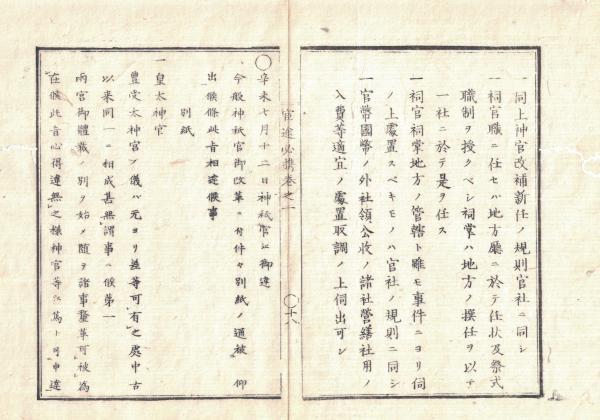 一同上神官改補新任ノ規則官社ニ同シ
一祠官職ニ任セハ地方廳ニ於テ任状及祭式
職制ヲ授クベシ祠掌ハ地方ノ撰任ヲ以テ
一社ニ於テ是ヲ任ス
一祠官祠掌地方ノ管轄ト雖モ事件ニヨリ伺
ノ上處置スベキモノハ官社ノ規則ニ同シ
一官幣國幣ノ外社領公收ノ諸社營繕社用ノ
入費等適宜ノ處置取調ノ上伺出可シ
官途必携巻之一
〇十八
〇辛未七月十二日神祇官江御達
今般神祇官御改革ニ付件々別紙ノ通被 仰
出候條此旨相達候事
別紙
一皇太神宮
豊受太神宮ノ儀ハ元ヨリ差等可有之處中古
以来同一ニ相成甚無謂事ニ候第一
兩宮御體裁ノ別ヲ始メ随テ諸事釐革可被為
在候此旨心得違無之様神官等江篤ト可申達